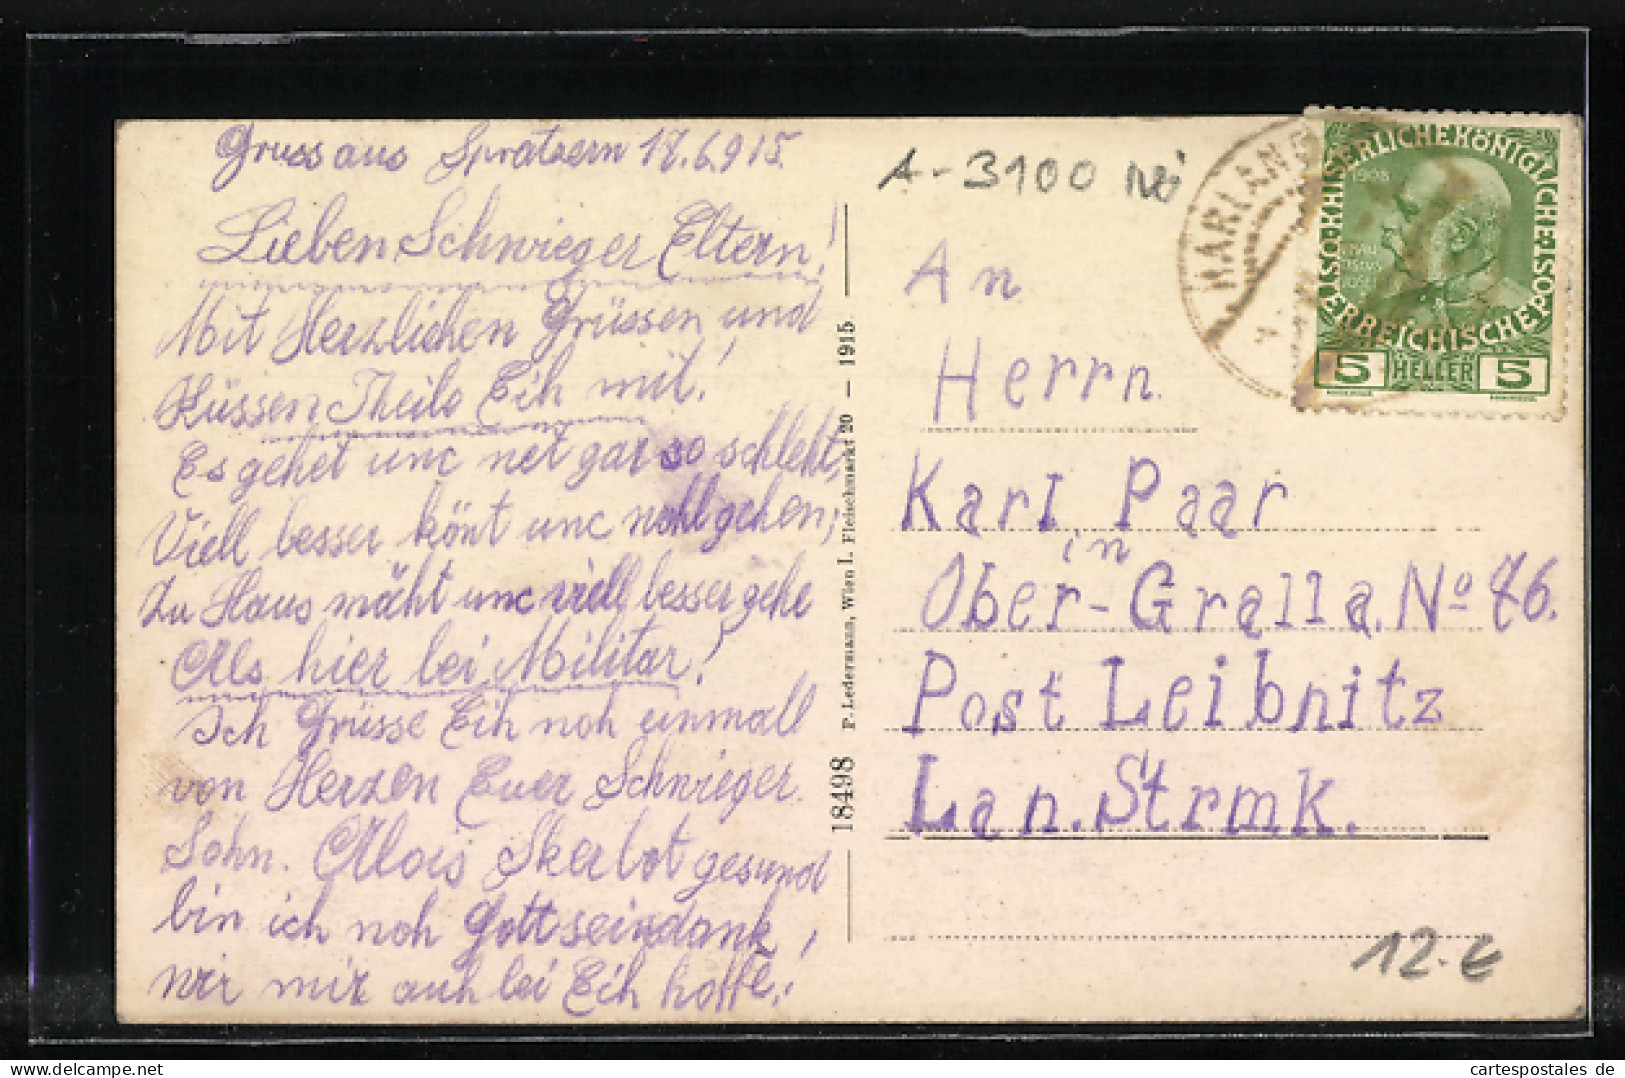 Gruss aus Spratzern 18.6.915.
Lieben Schwieger Eltern!
Mit Herzlichen Grüssen und
Küssen Theile Eih mit!
Es gehet unc net gar so schleht,
Viell besser könt unc nohl gehen;
Zu Haus mäht unc viell besser gehe
Als hier bei Militar!
Ich Grüsse Eih noh einmall
von Herzen Euer Schwieger.
Sohn. Alois Skerbot gesund
bin ich noh Gott seindank,!
wir mir auh bei Eih hoffe,!
18498 P. Ledermann, Wien I. Fleischmarkt 20 — 1915.
A-3100
MARIAN
KAISERLICHE KÖNIGLICHE
ÖSTERREICHISCHE POST
1908
5 HELLER 5
An
Herrn.
Karl Paar
in
Ober-Gralla. No 76.
Post Leibnitz
Lan. Strmk.
12.-€
cartespostales de